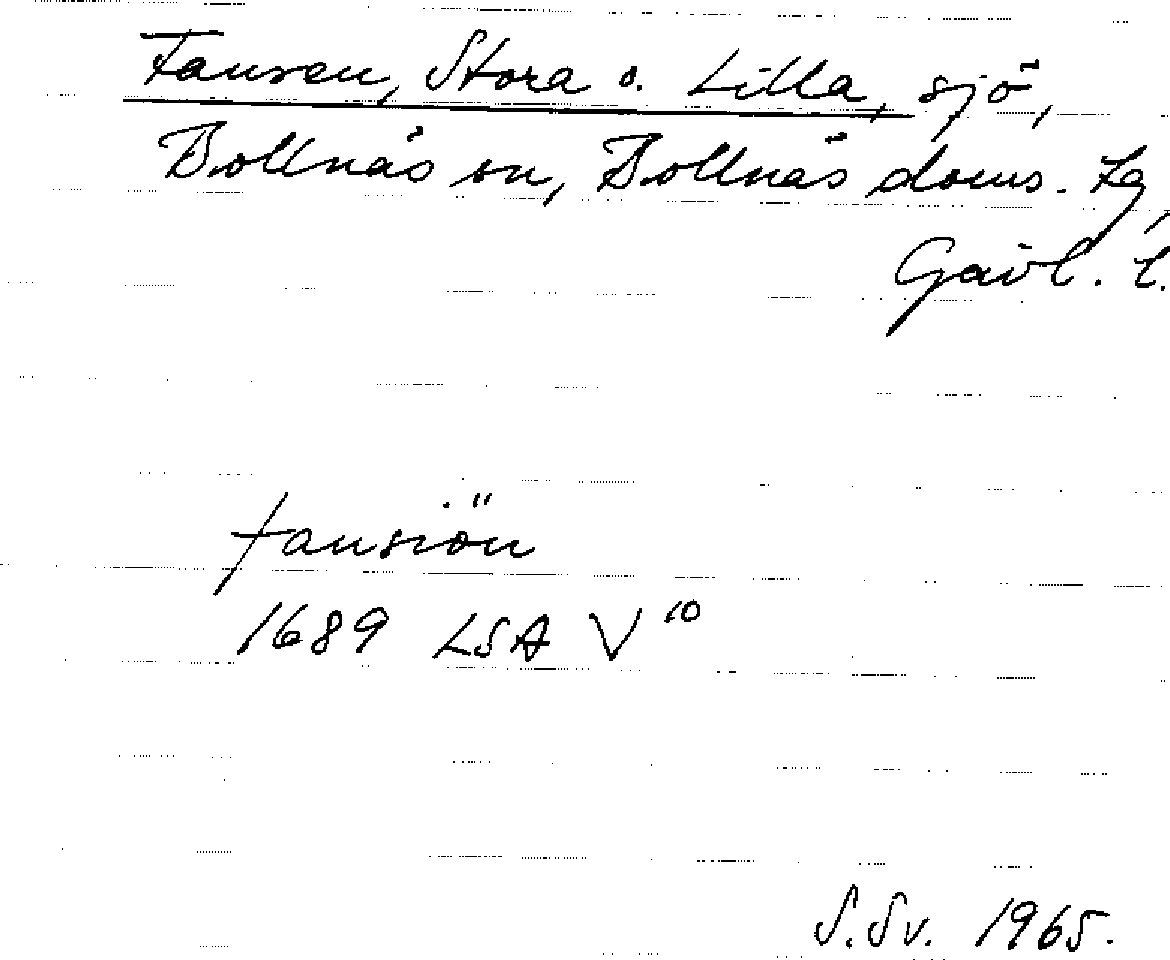 Fansen, Stora o. Lilla, sjö,
Bollnäs sn, Bollnäs doms. tg,
Gävl. l.
fansiön
1689 LSA V¹⁰
S. Sv. 1965.